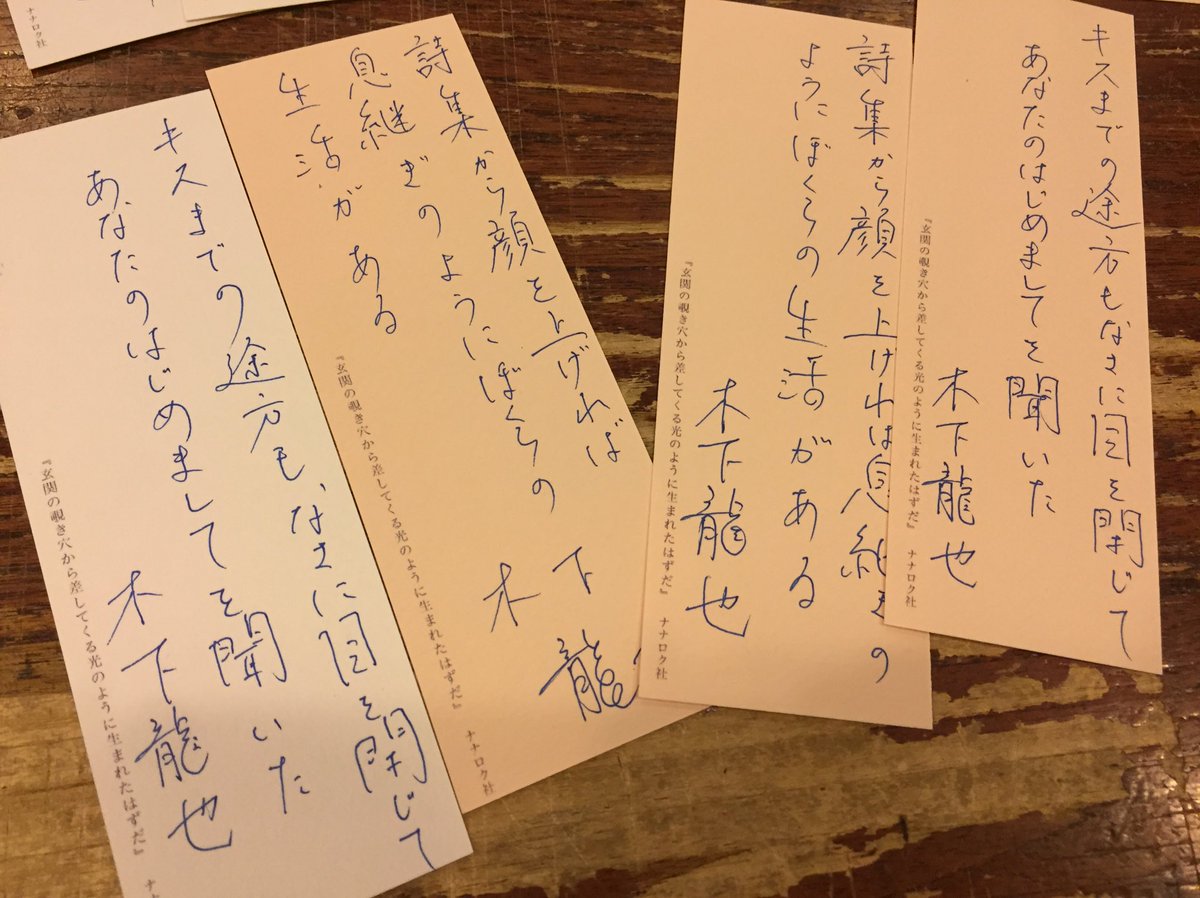 キスまでの途方もなさに目を閉じて
あなたのはじめましてを聞いた
木下龍也
『玄関の覗き穴から差してくる光のように生まれたはずだ』 ナナロク社
詩集から顔を上げれば息継ぎの
ようにぼくらの生活がある
木下龍也
『玄関の覗き穴から差してくる光のように生まれたはずだ』 ナナロク社
詩集から顔を上げれば
息継ぎのようにぼくらの
生活がある
木下龍
『玄関の覗き穴から差してくる光のように生まれたはずだ』 ナナロク社
キスまでの途方もなさに目を閉じて
あなたのはじめましてを聞いた
木下龍也
『玄関の覗き穴から差してくる光のように生まれたはずだ』 ナナロク社
ナナロク社